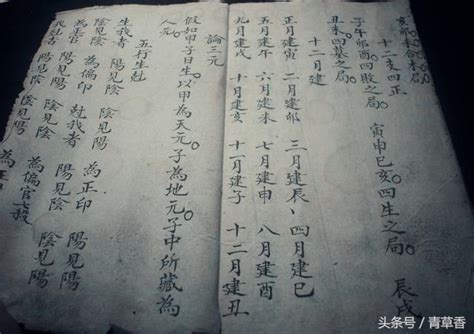 十二支四正
子午卯酉。四敗之局。寅申巳亥。四生之局。辰戌
丑未。四墓之局。
十二月建
正月建寅 二月建卯 三月建辰、四月建巳
五月建午 六月建未 七月建申 八月建酉
九月建戌 十月建亥 十一月建子 十二月建丑
論三元
假如甲子日生。以甲為天元。子為地元。子中所藏為
人元。
五行生尅
生我者 陽見陰 陰見陽 為正印 陽見陽
陰見陰 為偏印 尅我者 陽見陰
陽見陽 陰見陰 為偏官七殺
头条号 / 青草香